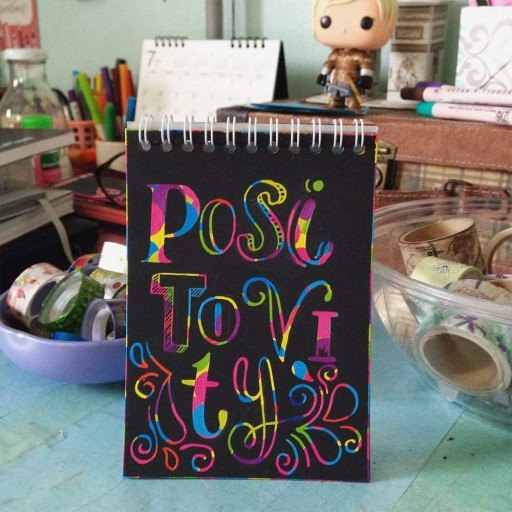 7
Posi
ToVI
ty